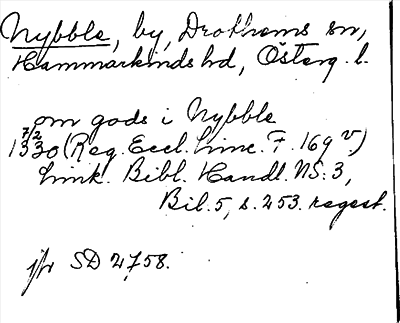 Nybble, by, Drothems sn,
Hammarkinds hd, Österg. l.
om gods i Nybble
7/2
1330 (Reg. Eccl. Linc. F. 169 v.)
Link. Bibl. Handl. NS. 3,
Bil. 5, s. 253. regest.
jfr SD 4,58.